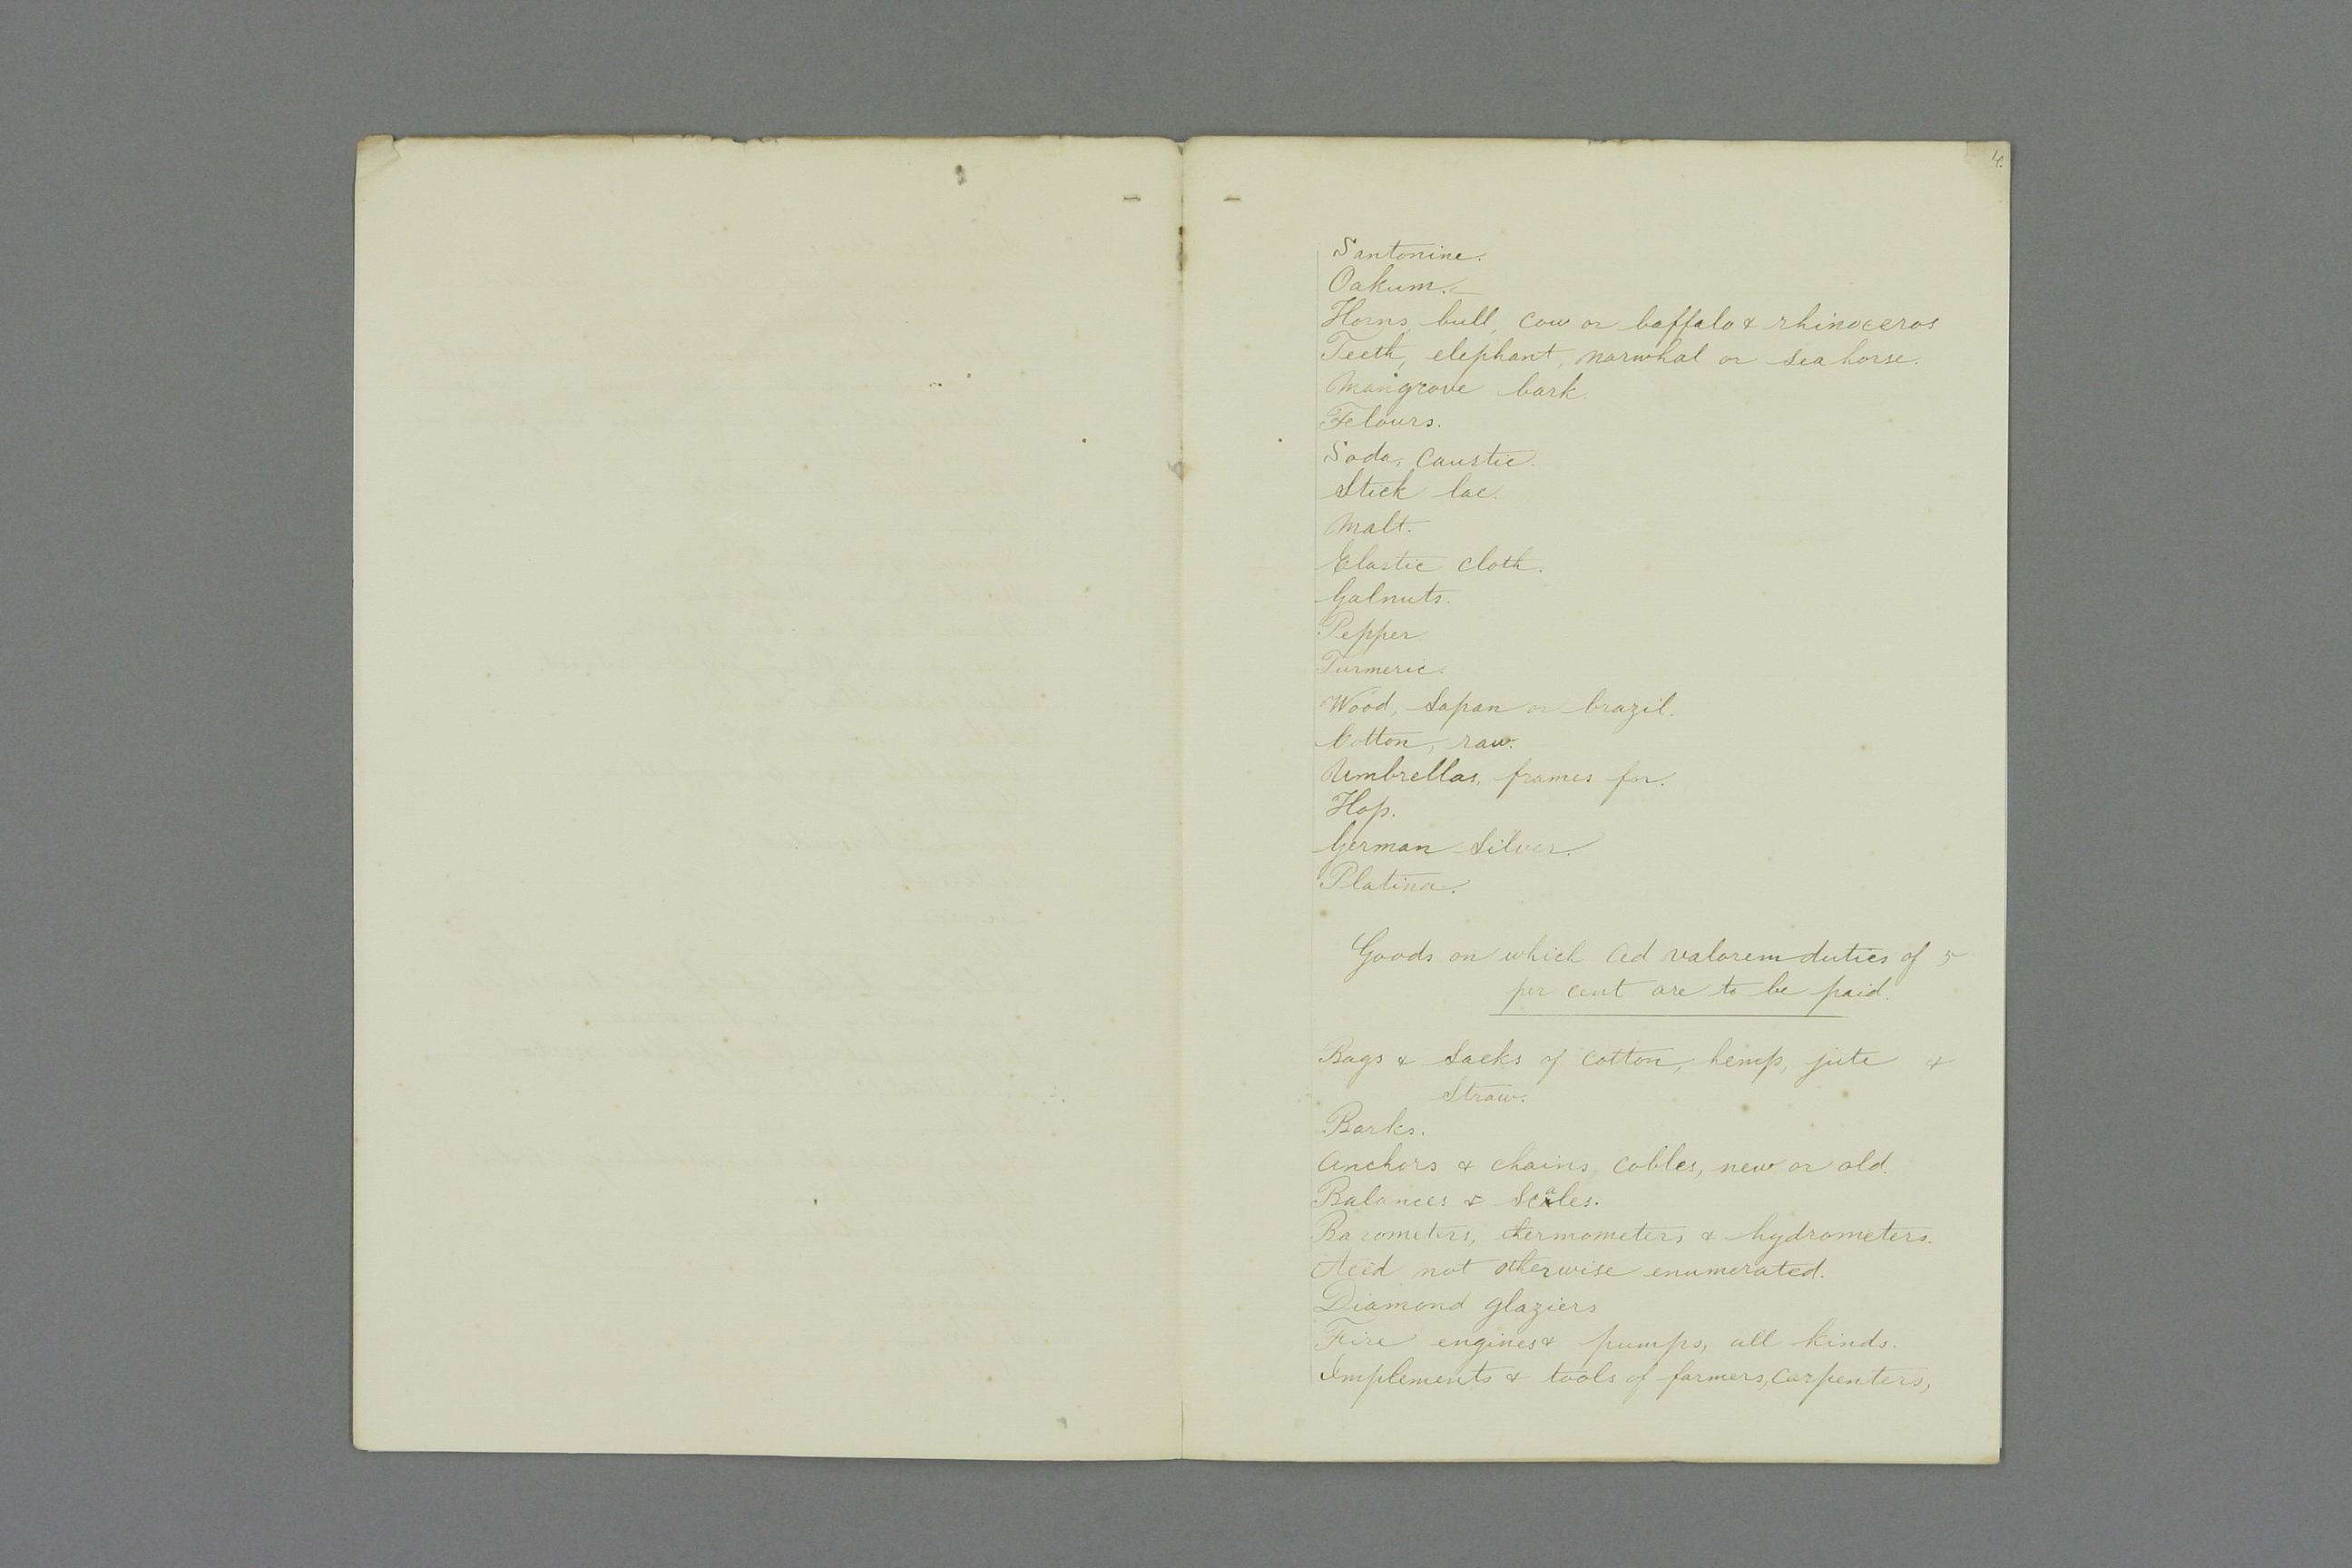 4.
Santonine.
Oakum.
Horns, bull, cow or baffalo & rhinoceros
Teeth, elephant, narwhal or sea horse.
Mangrove bark.
Felours.
Soda, Caustic.
Stick lac.
Malt.
Elastic cloth.
Galnuts.
Pepper
Turmeric.
Wood, Sapan or brazil.
Cotton, raw.
Umbrellas, frames for.
Hop.
German Silver.
Platina.
Goods on which ad valorem duties of 5
per cent are to be paid.
Bags & Sacks of cotton, hemp, jute &
Straw.
Barks.
Anchors & chains, cobles, new or old.
Balances & Scales.
Barometers, thermometers & hydrometers.
Acid not otherwise enumerated.
Diamond glaziers
Fire engines & pumps, all kinds.
Implements & tools of farmers, carpenters,